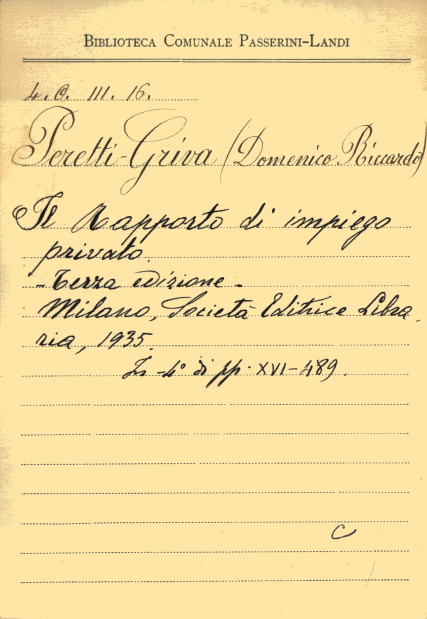 BIBLIOTECA COMUNALE PASSERINI-LANDI
4. C. III. 16.
Peretti-Griva (Domenico Riccardo)
Il Rapporto di impiego
privato.
- Terza edizione -
Milano, Società Editrice Libra
ria, 1935.
In-4° di pp. XVI-489.
C